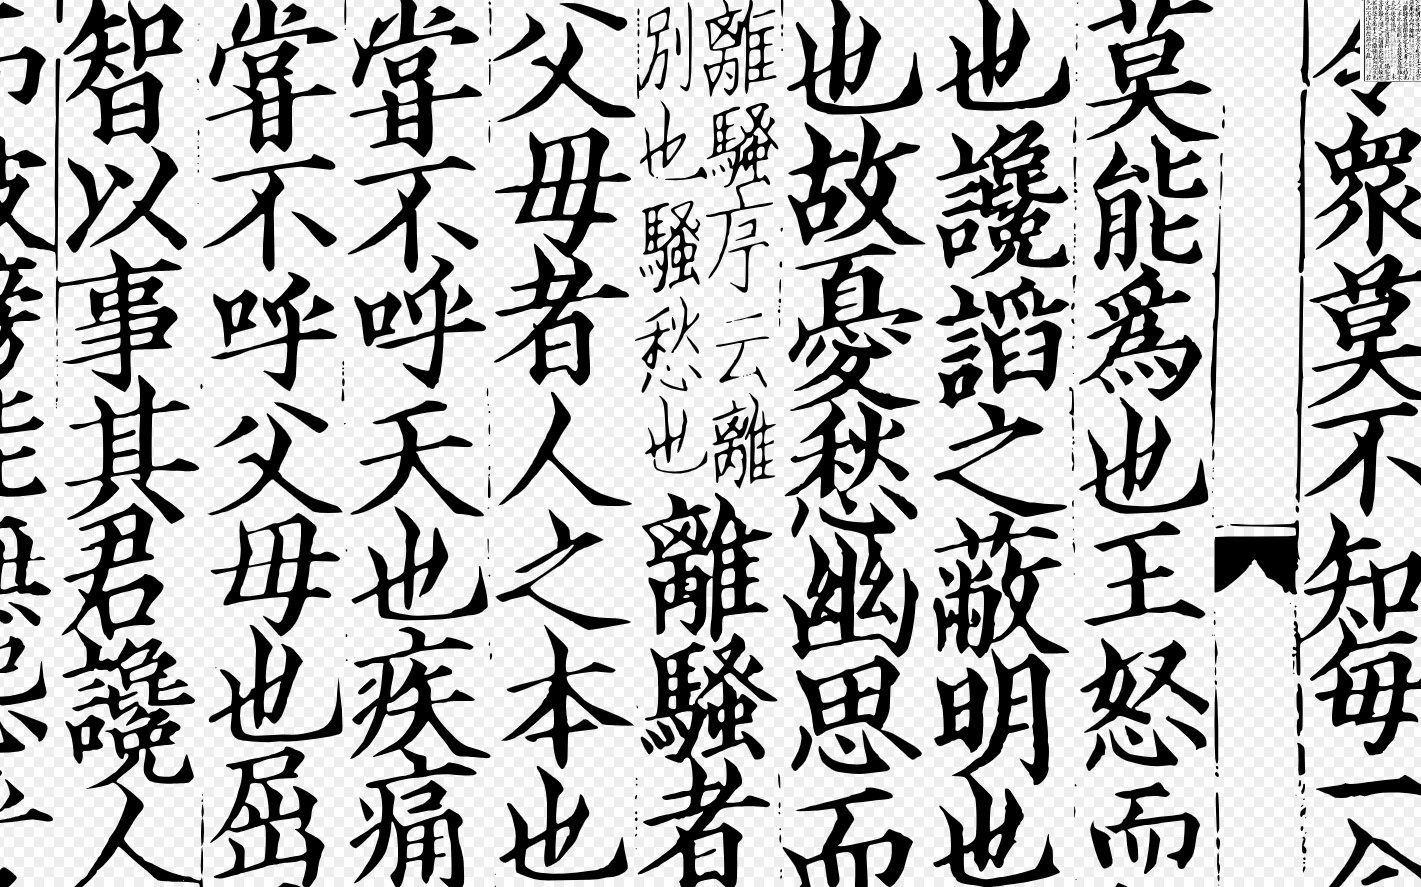 令眾莫不知每一令
莫能爲也王怒而
也讒謟之蔽明也
也故憂愁幽思而
離騷序云離
別也騷愁也
離騷者
父母者人之本也
甞不呼天也疾痛
甞不呼父母也屈
智以事其君讒人